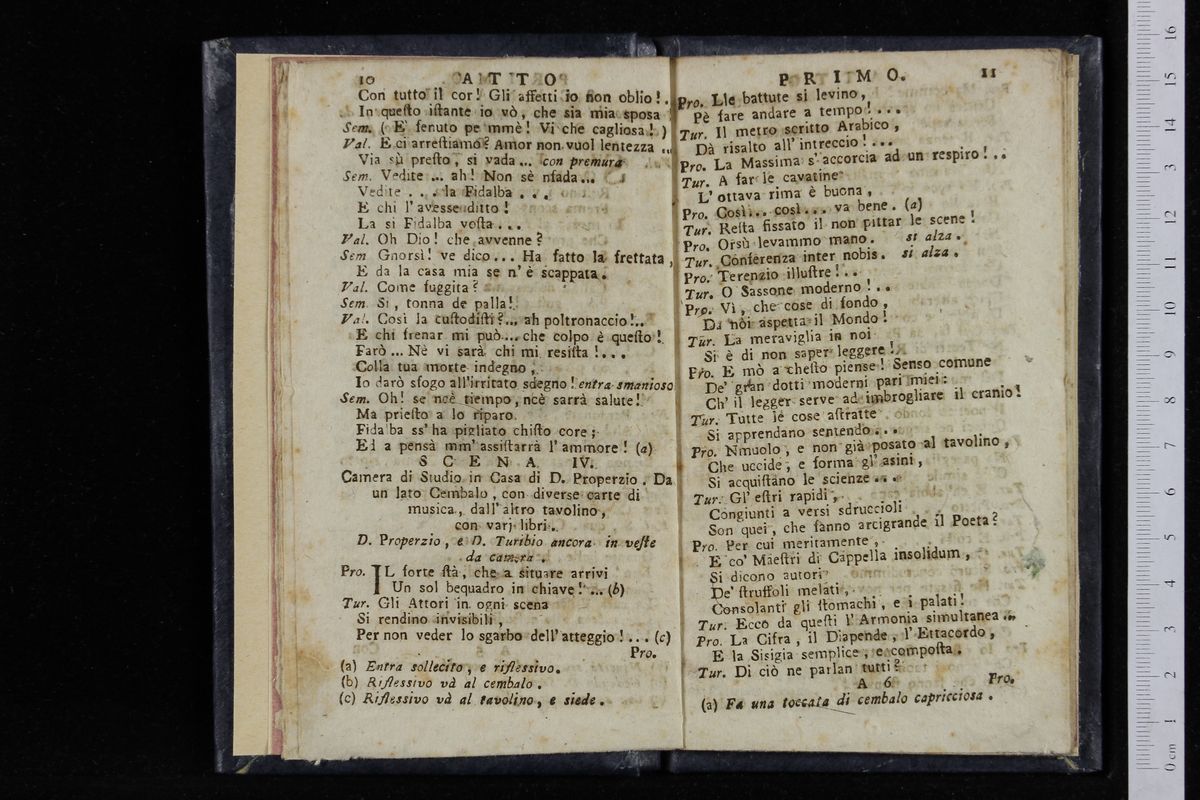 10 ATTO
Con tutto il cor! Gli affetti io non oblio!.
In questo istante io vò, che sia mia sposa
Sem. ( E' fenuto pe mmè! Vi che cagliosa! )
Val. E ci arrestiamo? Amor non vuol lentezza ...
Via sù presto, si vada... con premura
Sem. Vedite ... ah! Non sè nfada...
Vedite . . . la Fidalba . . .
E chi l'avesse ditto!
La si Fidalba vosta...
Val. Oh Dio! che avvenne?
Sem Gnorsì! ve dico... Ha fatto la frettata,
E da la casa mia se n'è scappata.
Val. Come fuggita?
Sem. Si, tonna de palla!
Val. Così la custodisti?... ah poltronaccio!..
E chi frenar mi può... che colpo è questo!
Farò ... Nè vi sarà chi mi resista!...
Colla tua morte indegno,
Io darò sfogo all'irritato sdegno! entra smanioso
Sem. Oh! se ncè tiempo, ncè sarrà salute!
Ma priesto a lo riparo.
Fidalba ss'ha pigliato chisto core;
Ed a pensà mm'assistarrà l'ammore! (a)
SCENA IV.
Camera di Studio in Casa di D. Properzio. Da
un lato Cembalo, con diverse carte di
musica, dall'altro tavolino,
con varj libri.
D. Properzio, e D. Turibio ancora in veste
da camera.
Pro. IL forte stà, che a situare arrivi
Un sol bequadro in chiave! ... (b)
Tur. Gli Attori in ogni scena
Si rendino invisibili,
Per non veder lo sgarbo dell'atteggio!... (c)
Pro.
(a) Entra sollecito, e riflessivo.
(b) Riflessivo và al cembalo.
(c) Riflessivo và al tavolino, e siede.
PRIMO. 11
Pro. Lle battute si levino,
Pè fare andare a tempo!...
Tur. Il metro scritto Arabico,
Dà risalto all'intreccio!...
Pro. La Massima s'accorcia ad un respiro!..
Tur. A far le cavatine
L'ottava rima è buona,
Pro. Così... così... va bene. (a)
Tur. Resta fissato il non pittar le scene!
Pro. Orsù levammo mano. si alza.
Tur. Conferenza inter nobis. si alza.
Pro. Terenzio illustre!..
Tur. O Sassone moderno!..
Pro. Vì, che cose di fondo,
Da noi aspetta il Mondo!
Tur. La meraviglia in noi
Si è di non saper leggere!
Pro. E mò a chesto piense! Senso comune
De' gran dotti moderni pari miei:
Ch' il legger serve ad imbrogliare il cranio!
Tur. Tutte le cose astratte
Si apprendano sentendo...
Pro. Nmuolo, e non già posato al tavolino,
Che uccide, e forma gl'asini,
Si acquistàno le scienze...
Tur. Gl'estri rapidi,
Congiunti a versi sdruccioli
Son quei, che fanno arcigrande il Poeta?
Pro. Per cui meritamente,
E co' Maestri di Cappella insolidum,
Si dicono autori
De' struffoli melati,
Consolanti gli stomachi, e i palati!
Tur. Ecco da questi l'Armonia simultanea...
Pro. La Cifra, il Diapende, l'Ettacordo,
E la Sisigia semplice, e composta.
Tur. Di ciò ne parlan tutti?
A 6 Pro.
(a) Fa una toccata di cembalo capricciosa.
16
15
14
13
12
11
10
9
8
7
6
5
4
3
2
1
0 cm